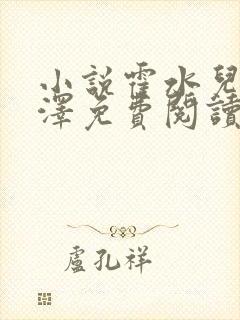 小說霍水兒
澤免費閱讀
盧孔祥